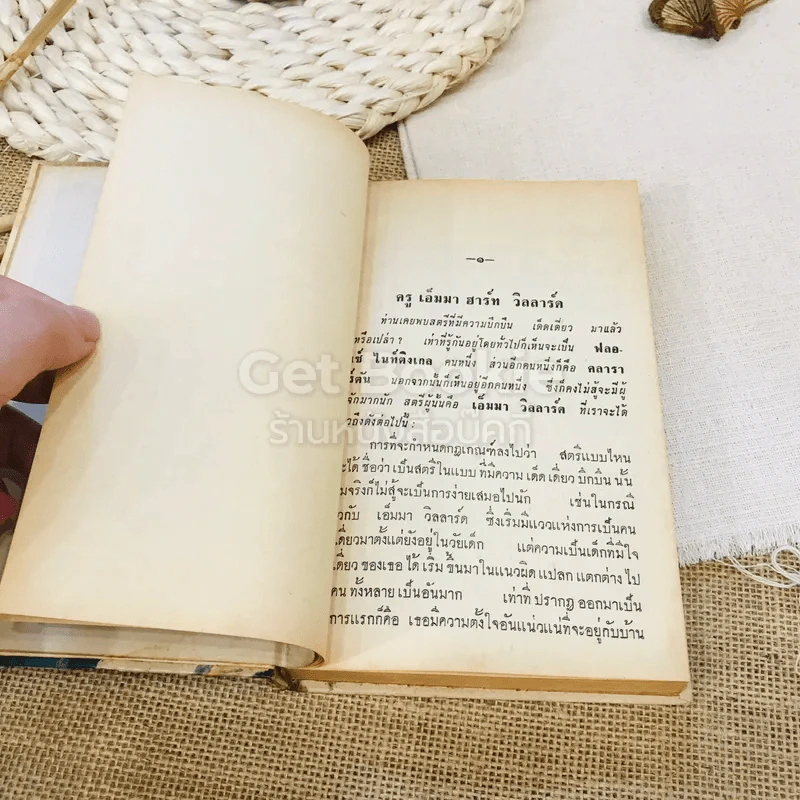 —๑—
ครู เอ็มมา ฮาร์ท วิลลาร์ด
ท่านเคยพบสตรีที่มีความบึกบึน เด็ดเดี่ยว มาแล้ว
หรือเปล่า? เท่าที่รู้กันอยู่โดยทั่วไปก็เห็นจะเป็น ฟลอ-
ไนท์ติงเกล คนหนึ่ง ส่วนอีกคนหนึ่งก็คือ คลารา
นอกจากนั้นก็เห็นอยู่อีกคนหนึ่ง ซึ่งก็คงไม่สู้จะมีผู้
จักมากนัก สตรีผู้นั้นคือ เอ็มมา วิลลาร์ด ที่เราจะได้
ถึงดังต่อไปนี้ :
การที่จะกำหนดกฎเกณฑ์ลงไปว่า สตรีแบบไหน
จะได้ชื่อว่าเป็นสตรีในแบบที่มีความเด็ดเดี่ยวบึกบึนนั้น
จริงก็ไม่สู้จะเป็นการง่ายเสมอไปนัก เช่นในกรณี
เอ็มมา วิลลาร์ด ซึ่งเริ่มมีแววแห่งการเป็นคน
เดี่ยวมาตั้งแต่ยังอยู่ในวัยเด็ก แต่ความเป็นเด็กที่มีใจ
เดี่ยวของเธอได้เริ่มขึ้นมาในแนวผิดแปลกแตกต่างไป
คนทั้งหลายเป็นอันมาก เท่าที่ปรากฏออกมาเป็น
การแรกก็คือ เธอมีความตั้งใจอันแน่วแน่ที่จะอยู่กับบ้าน
Get Bookie
ร้านหนังสือบุ๊คกี้